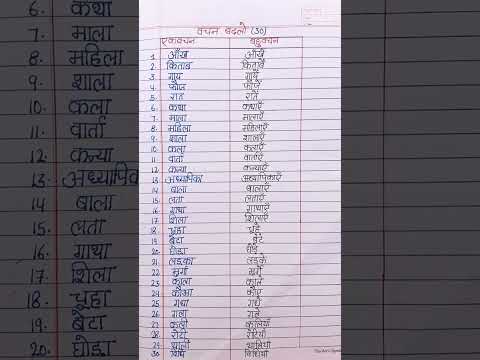 6. कथा
7. माला
8. महिला
9. शाला
10. कला
11. वार्ता
12. कन्या
13. अध्यापिक
14 बाला
15. लता
16. गाथा
17. शिला
18. चूहा
19. बेटा
20. घोड़ा
वचन बदलो (30)
एकवचन बहुवचन
1 आँख आँखें
2 किताब किताबें
3 गाय गायें
4 फौज फौजें
5 रात रातें
6 कथा कथाएँ
7 माला मालाएँ
8 महिला महिलाएँ
9 शाला शालाएँ
10 कला कलाएँ
11 वार्ता वार्ताएँ
12 कन्या कन्याएँ
13 अध्यापिका अध्यापिकाएँ
14 बाला बालाएँ
15 लता लताएँ
16 गाथा गाथाएँ
17 शिला शिलाएँ
18 चूहा चूहे
19 बेटा बेटे
20 घोड़ा घोड़े
21 लड़का लड़के
22 मुर्गा मुर्गे
23 काला काले
24 कौआ कौए
25 गधा गधे
26 गला गले
27 कली कलियाँ
28 रोटी रोटियाँ
29 थाली थालियाँ
30 विधि विधियाँ